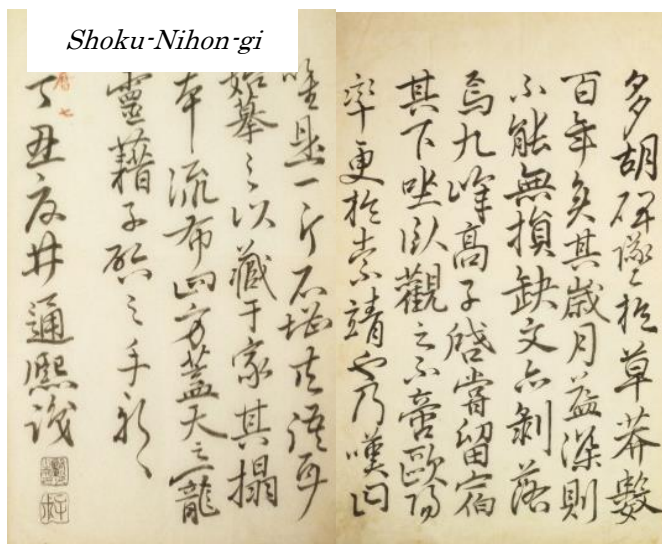 Shoku-Nihon-gi
多胡碑墜於草莽數
百年矣其歲月益深則
不能無損缺文亦剝落
焉九峰高子啓嘗留宿
其下坐臥觀之不啻歐陽
率更於索靖也乃嘆曰
唯是一片石堪共語耳
始摹之以藏于家其搨
本流布四方蓋天之寵
靈藉子啓之手
曆七
丁丑夏井通熙識